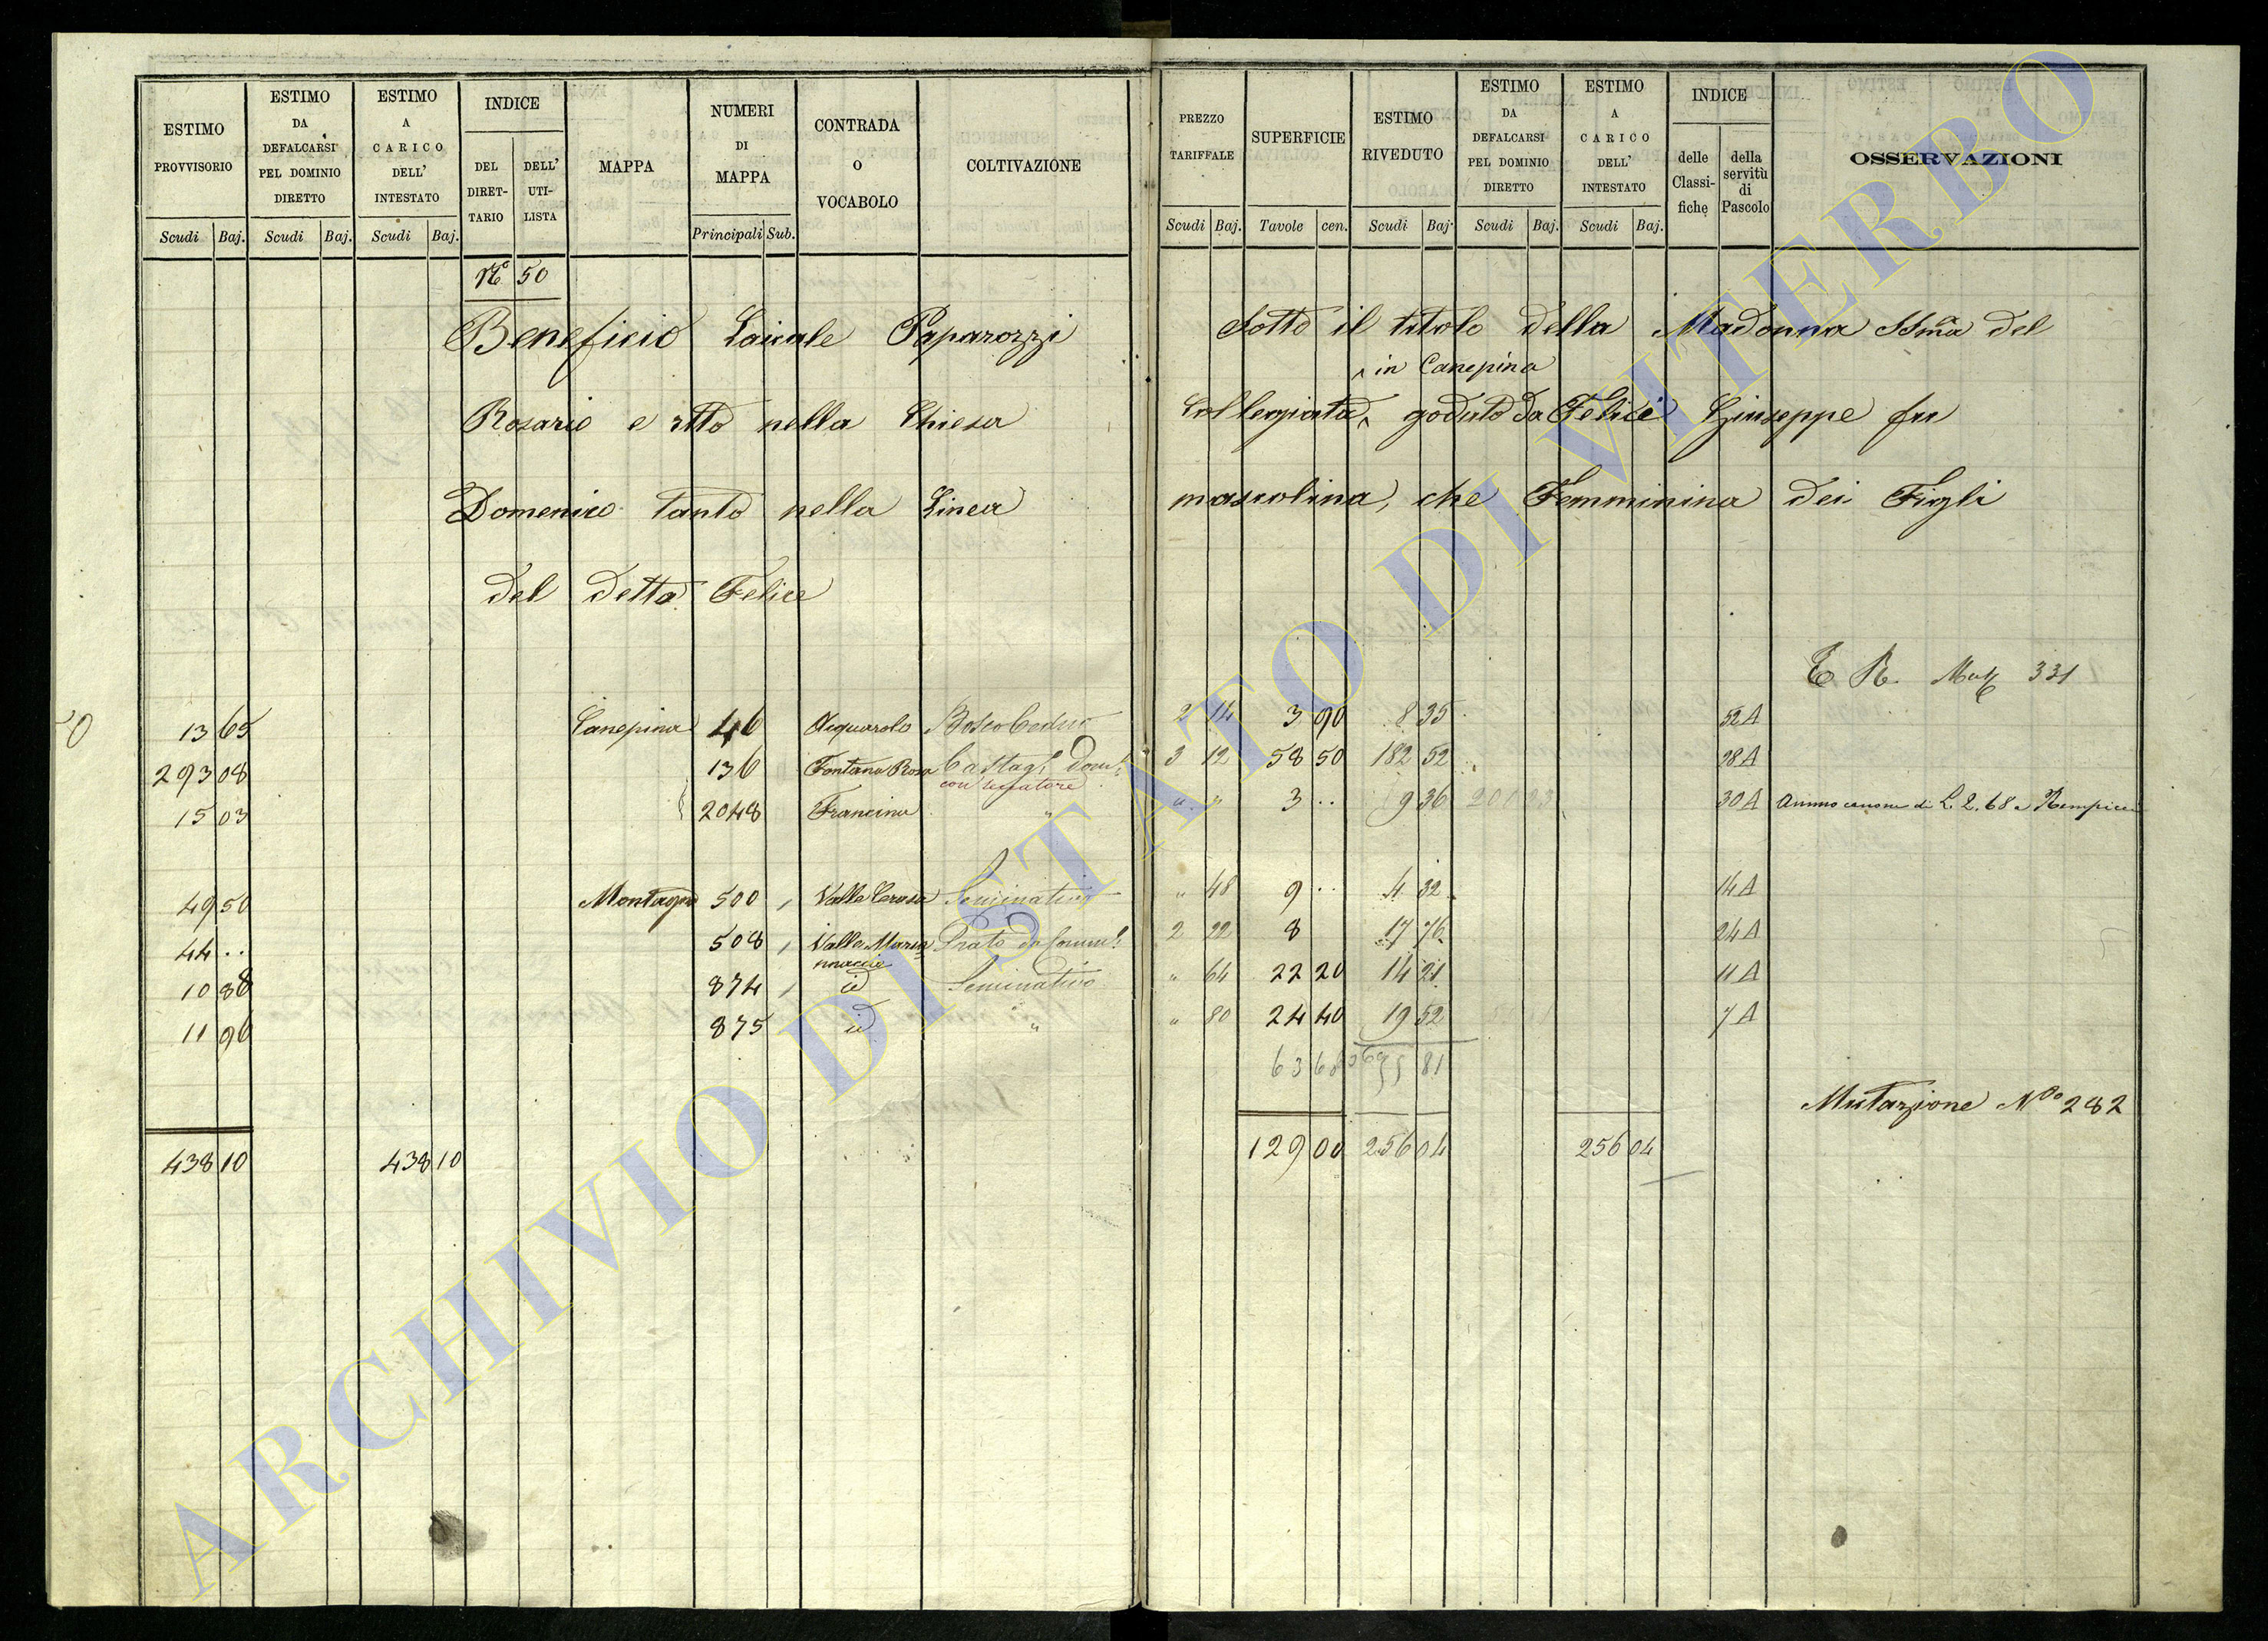 ESTIMO PROVVISORIO
ESTIMO DA DEFALCARSI PEL DOMINIO DIRETTO
ESTIMO A CARICO DELL' INTESTATO
INDICE
DEL DIRET-TARIO
DELL' UTI-LISTA
MAPPA
NUMERI DI MAPPA
CONTRADA O VOCABOLO
COLTIVAZIONE
Scudi Baj. Scudi Baj. Scudi Baj. Principali Sub.
PREZZO TARIFFALE
SUPERFICIE
ESTIMO RIVEDUTO
ESTIMO DA DEFALCARSI PEL DOMINIO DIRETTO
ESTIMO A CARICO DELL' INTESTATO
INDICE
delle Classi-fiche
della servitù di Pascolo
OSSERVAZIONI
Scudi Baj. Tavole cen. Scudi Baj. Scudi Baj. Scudi Baj.
N.º 50
Beneficio Laicale Paparozzi Sotto il titolo della Madonna SSma del
in Canepina
Rosario e itto nella Chiesa Collegiata goduto da Felice Giuseppe fu
Domenico tanto nella Linea mascolina, che Femminina dei Figli
del detto Felice
331
13 65 Canepina 46 Acquarolo Bosco Ceduo 2 14 3 90 8 35 52 A
293 08 136 Fontana Rosa Castag. Dom. 3 12 58 50 182 52 28 A
15 03 2048 Francina " " " 3 .. 9 36 30 A Annuo canone di L. 2.68 a
49 50 Montagna 500 Valle Cerasa Seminativo " 48 9 .. 4 32 14 A
44 .. 508 Valle Maria Prato da 2 22 8 17 76 24 A
10 88 874 id Seminativo " 64 22 20 14 21 11 A
11 96 875 id " " 80 24 40 19 52 7 A
81
Mutazione No 282
438 10 438 10 129 00 256 04 256 04
ARCHIVIO DI STATO DI VITERBO